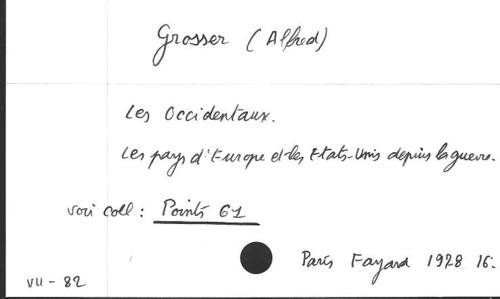 Grosser (Alfred)
Les Occidentaux.
Les pays d'Europe et les Etats-Unis depuis la guerre.
voir coll : Points 61
Paris Fayard 1978 16.
VII - 82